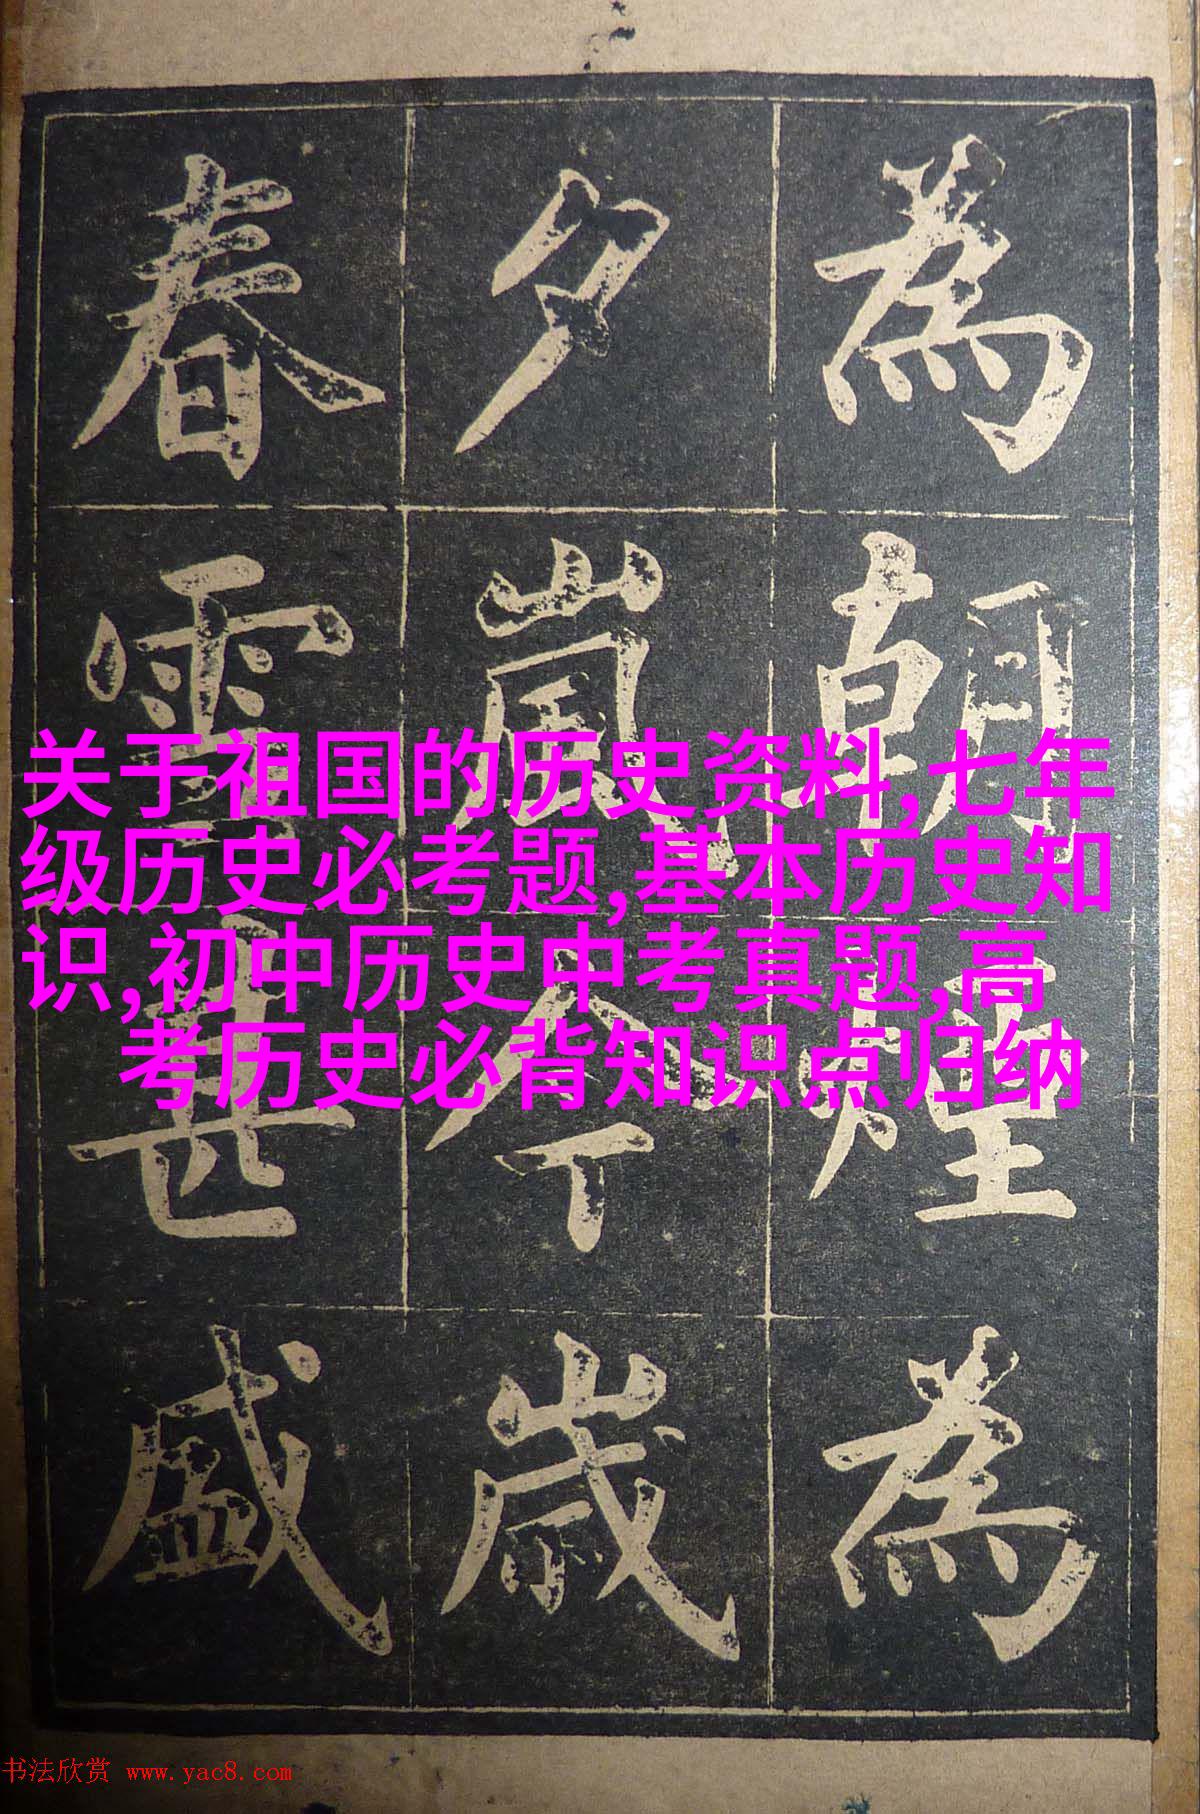 為朝煌為
夕嵐今歲
春雪甚盛
关于祖国的历史资料,七年
级历史必考题,基本历史知
识,初中历史中考真题,高
考历史必背知识点归纳
书法欣赏 www.yac8.com